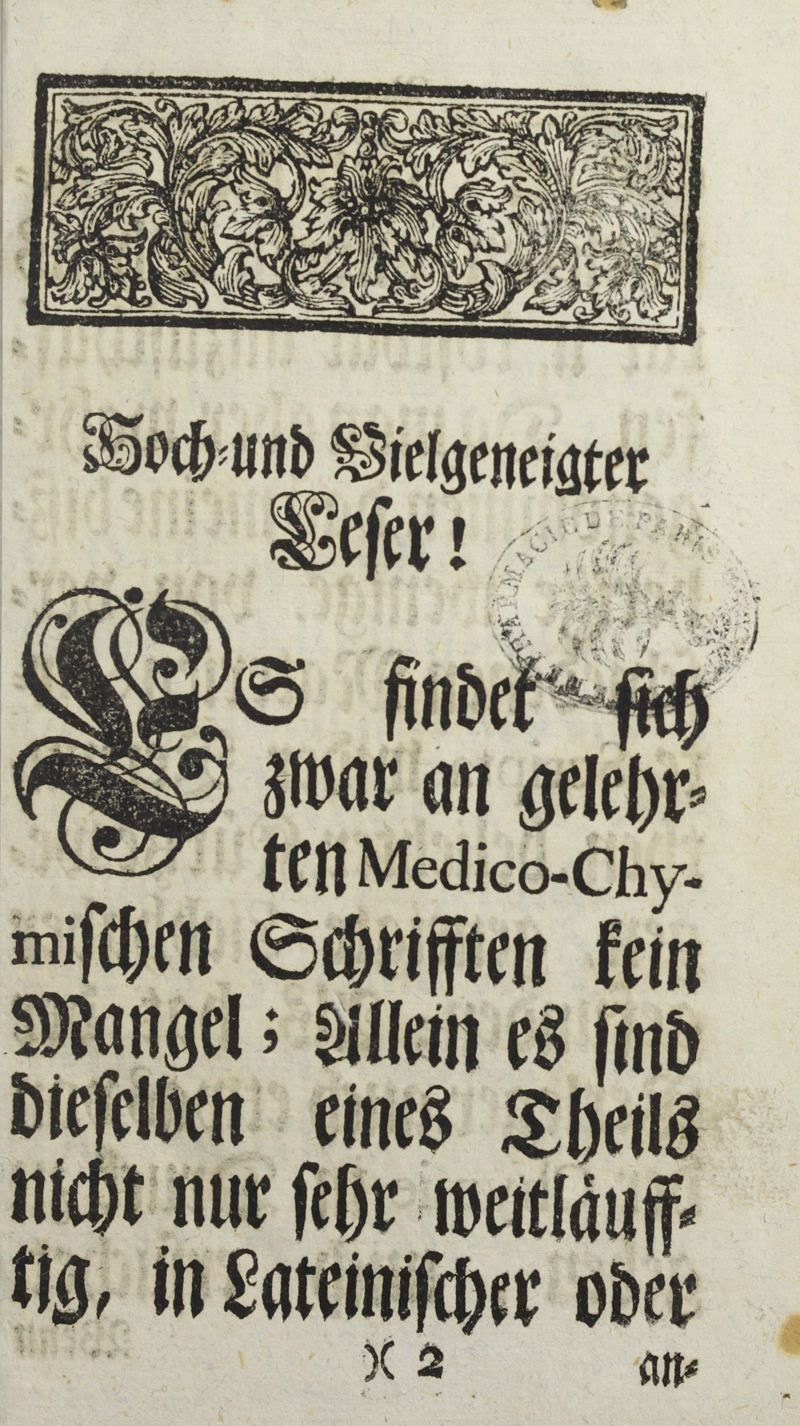 Hoch-und Vielgeneigter
Leser!
ES findet sich
zwar an gelehr-
ten Medico-Chy-
mischen Schrifften kein
Mangel; Allein es sind
dieselben eines Theils
nicht nur sehr weitläuff-
tig, in Lateinischer oder
)( 2
an-